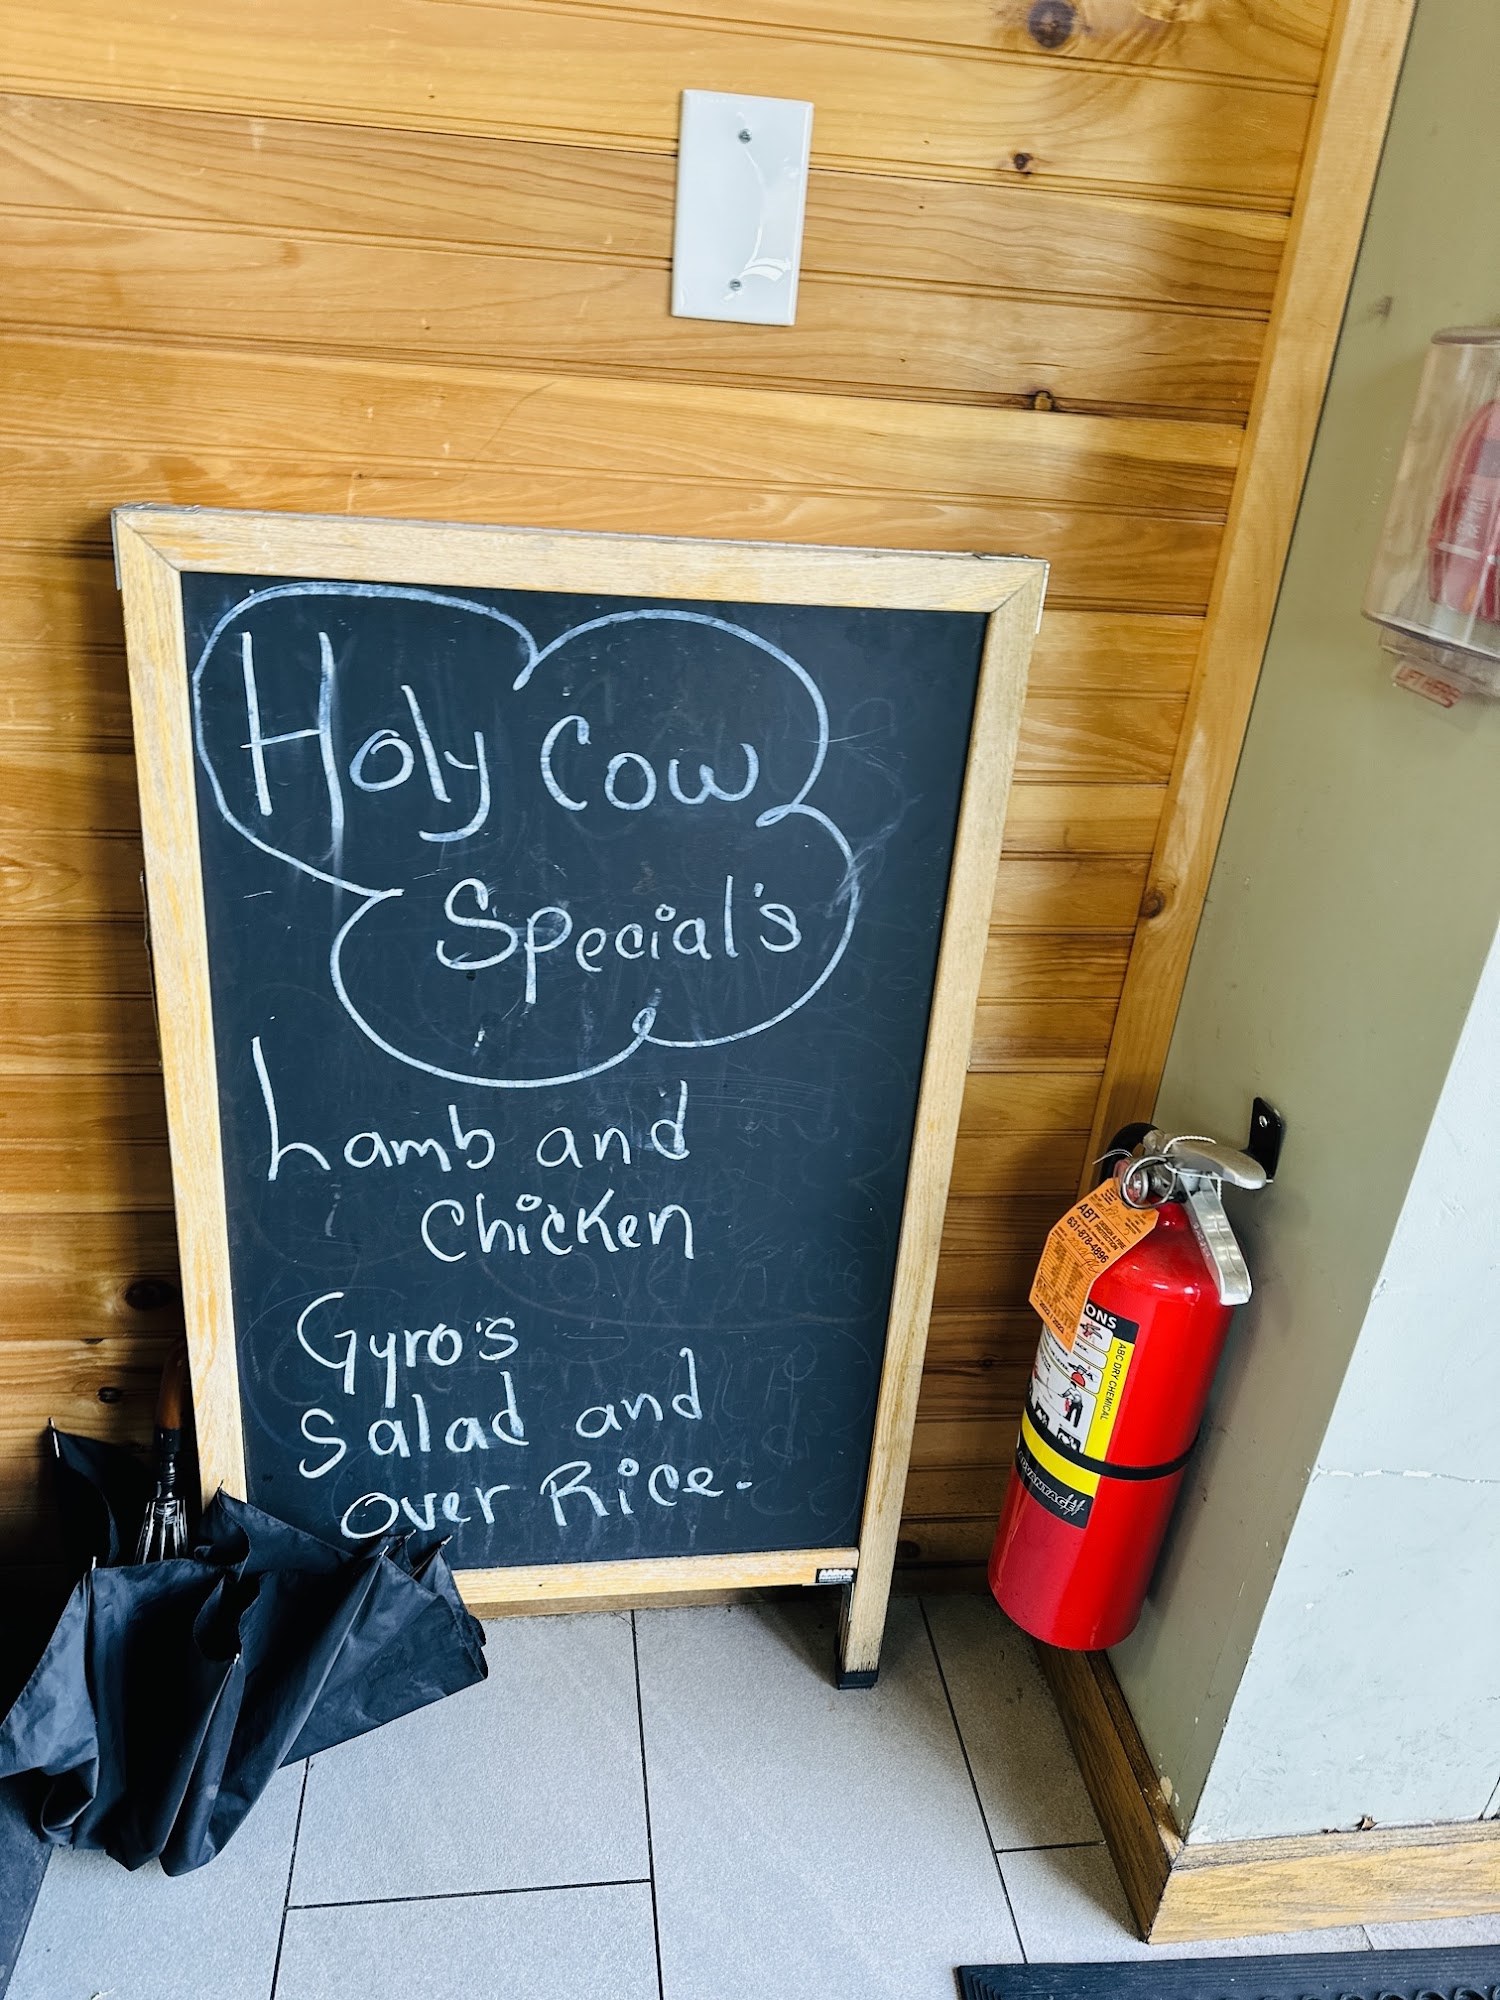 Holy Cow
Special's
Lamb and
Chicken
Gyro's
Salad and
over Rice.
LIFT HERE
ABT DESIGN & FIRE
PROTECTION
631-878-4896
ONS
ABC DRY CHEMICAL
ADVANTAGE
AARCO